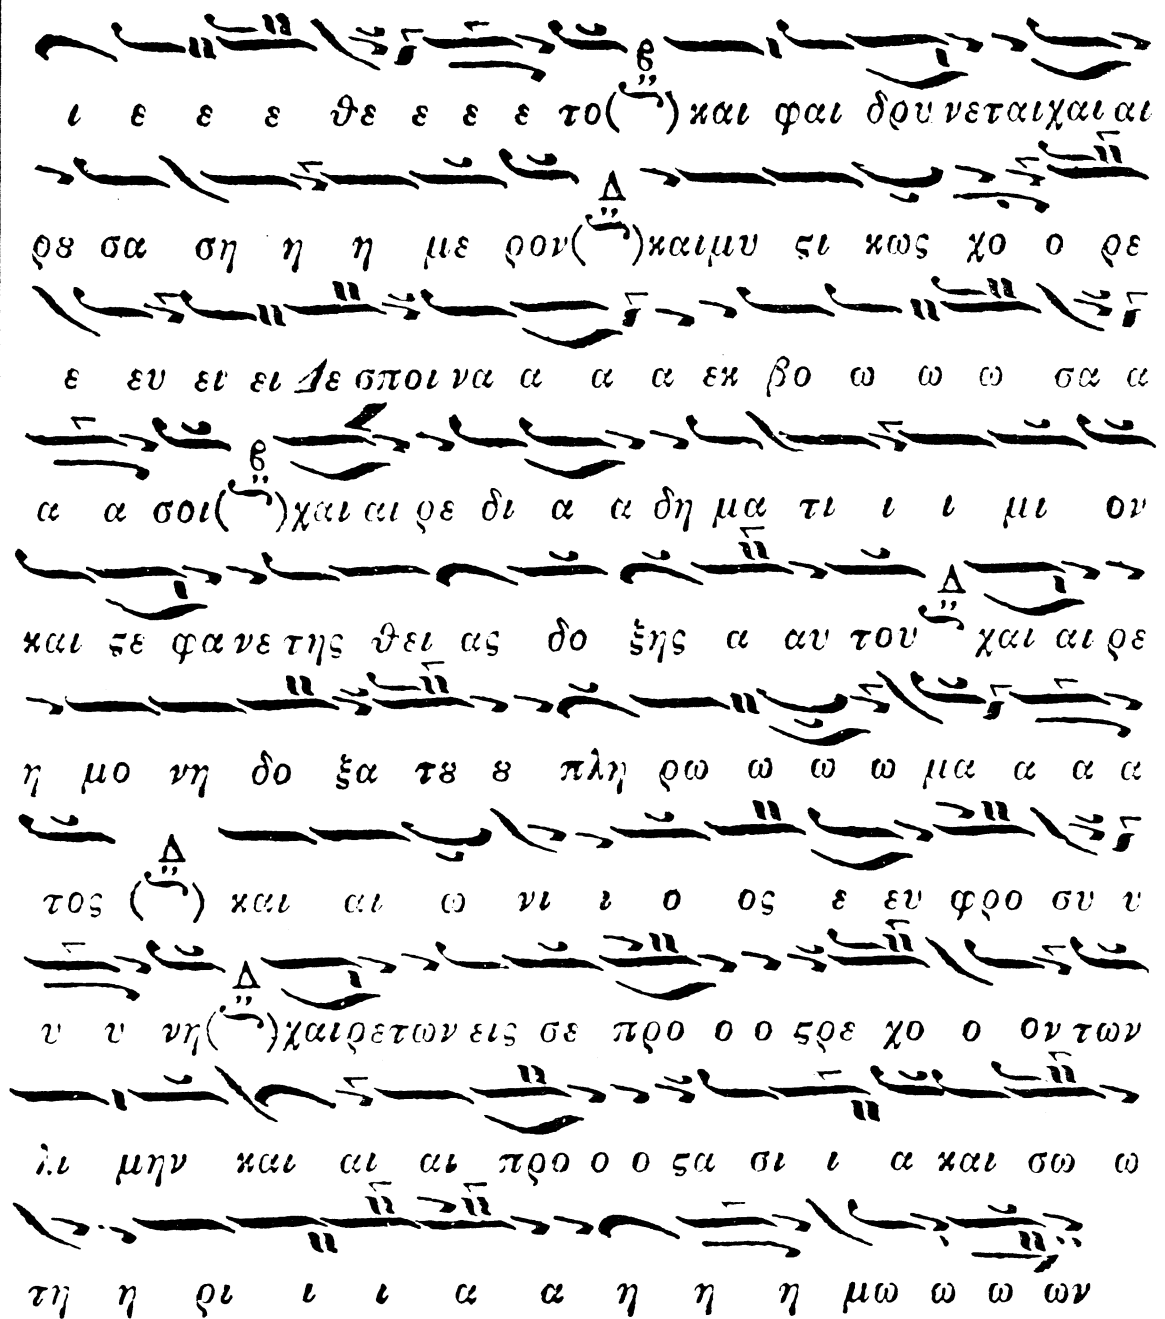 ι ε ε ε θε ε ε ε το( ) και φαι δρυ νεταιχαι αι
ρȣ σα ση η η με ρον( )καιμυ ϛι κως χο ο ρε
ε ευ ει ει Δε σποι να α α α εκ βο ω ω ω σα α
α α σοι( )χαι αι ρε δι α α δη μα τι ι ι μι ον
και ϛε φα νε της θει ας δο ξης α αυ του χαι αι ρε
η μο νη δο ξα τȣ ȣ πλη ρω ω ω ω μα α α α
τος ( ) και αι ω νι ι ο ος ε ευ φρο συ υ
υ υ νη( )χαιρετων εις σε προ ο ο ϛρε χο ο ον των
λι μην και αι αι προ ο ο ϛα σι ι α και σω ω
τη η ρι ι ι α α η η η μω ω ω ων